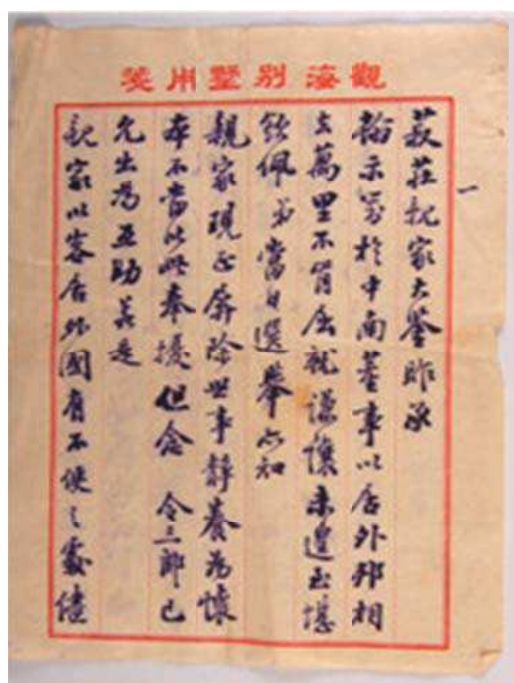 觀海別墅用箋
一
菽莊親家大鑒昨承
翰示實於中南董事以居外邦相
去萬里不肯屈就謙懷未遑至堪
欽佩弟當日選舉亦知
親家現正屏除世事靜養為懷
本不當以此奉擾但念 令三郎已
允出為互助若是
親家以客居外國有不便之處儘